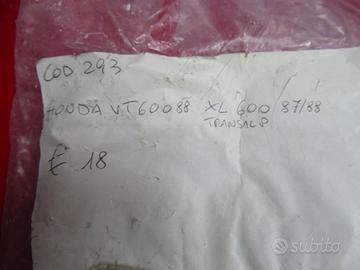 COD 293
HONDA VT60088 XL 600 87/88
TRANSALP
£ 18
subito